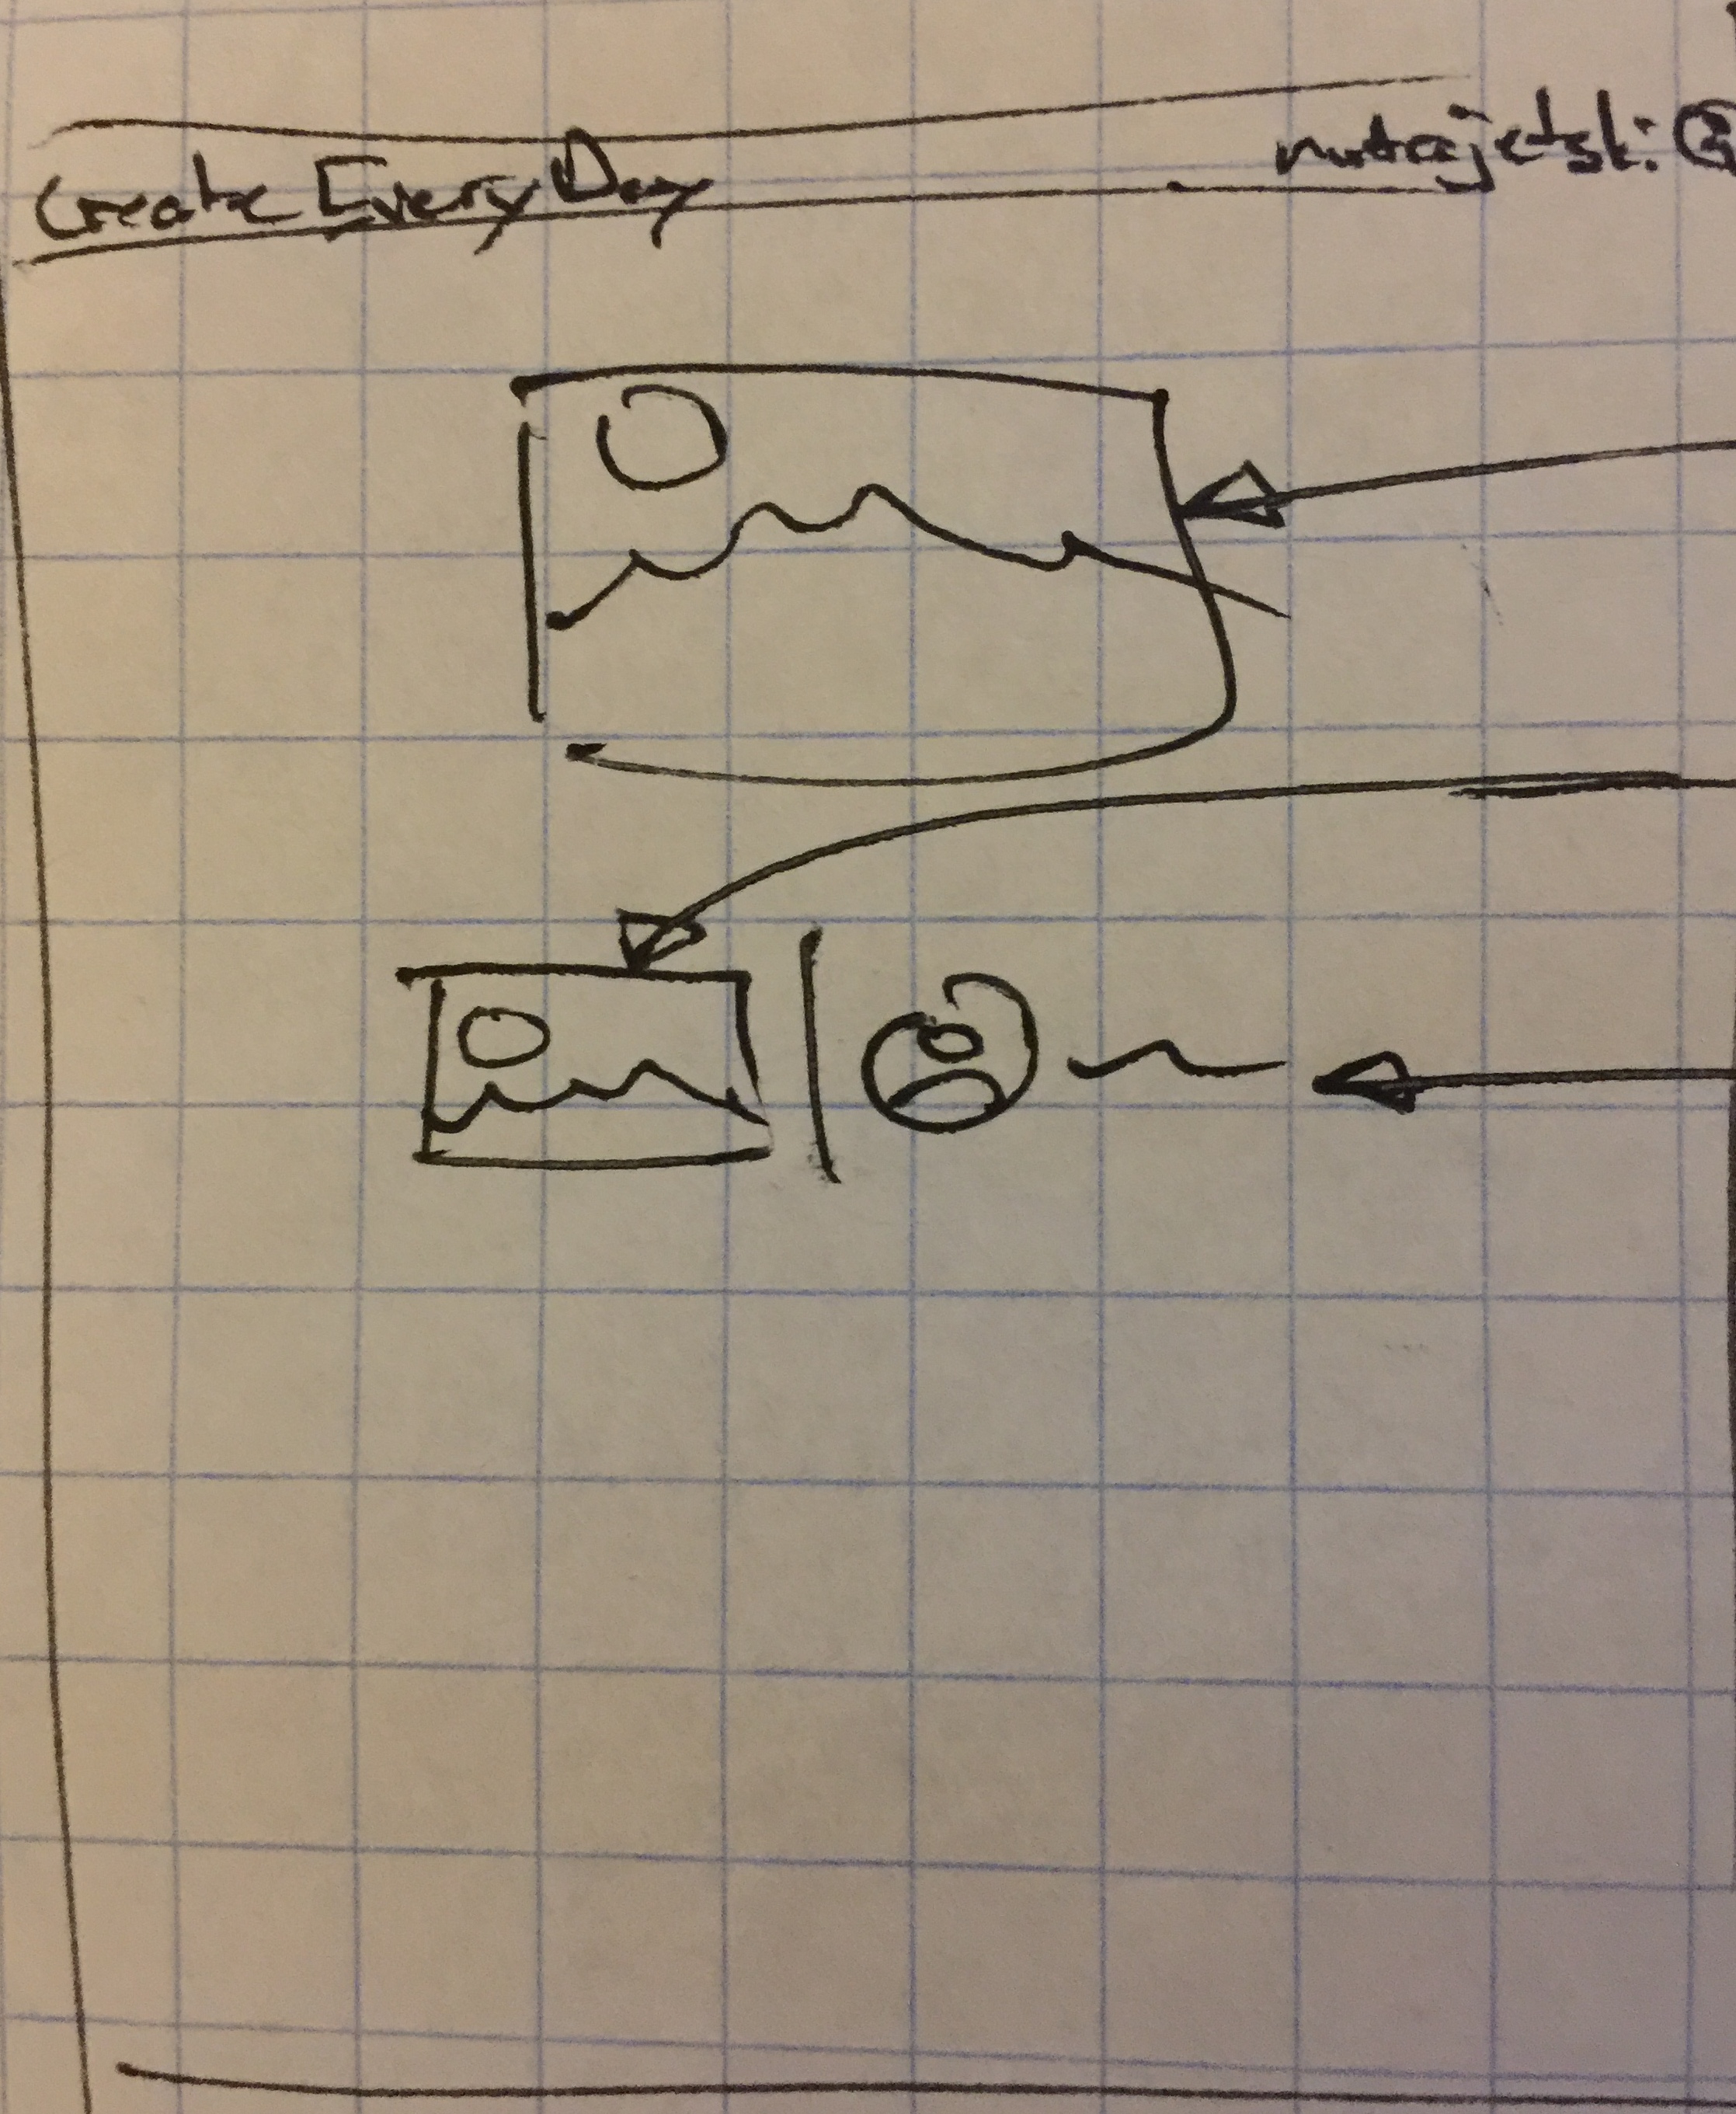 Create Every Day
nutrajetski